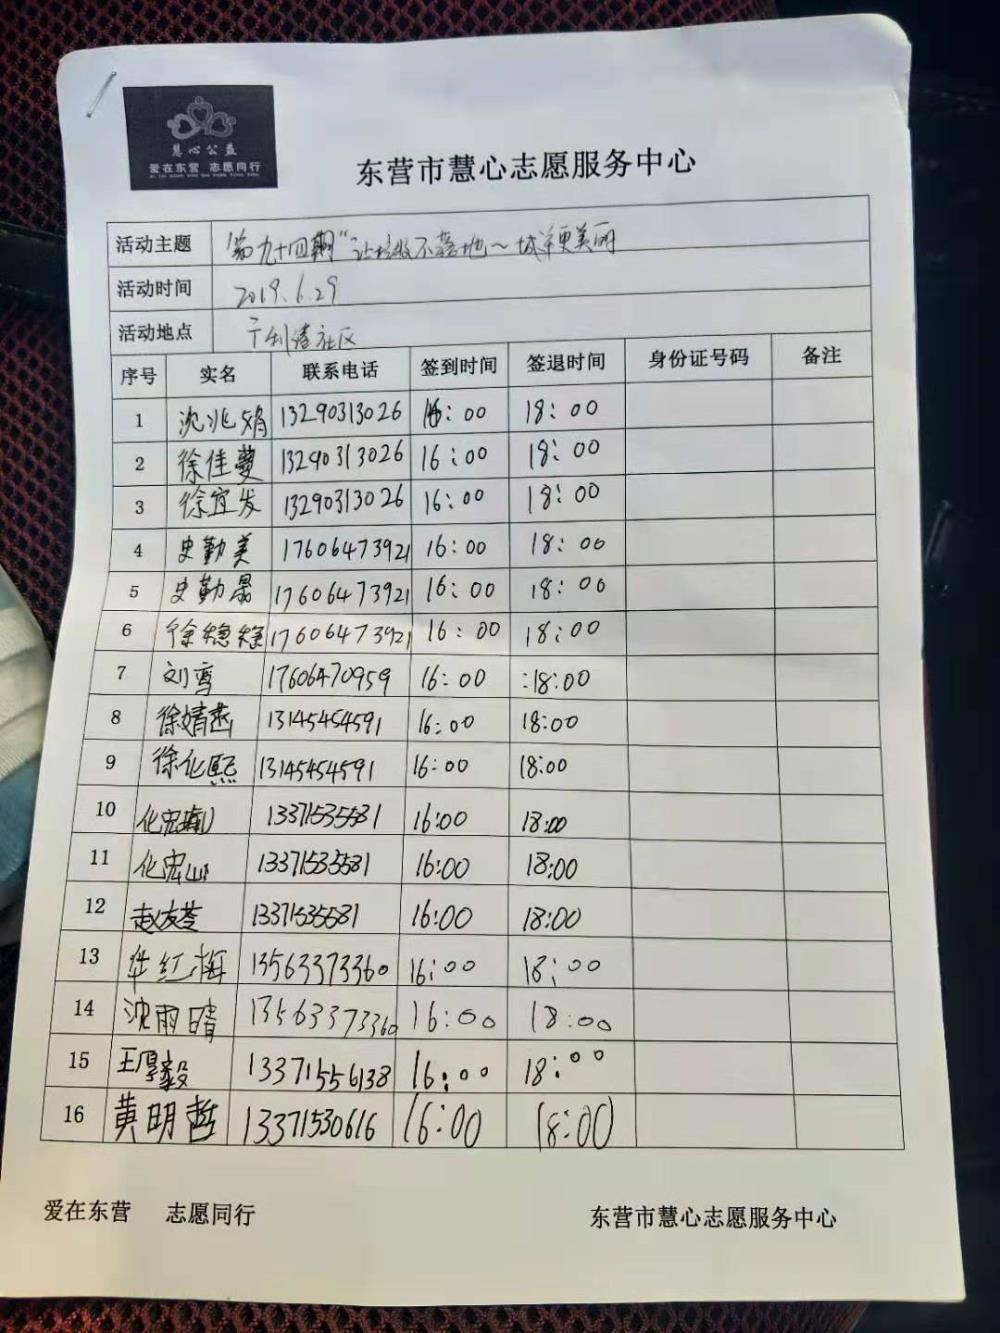 慧心公益
爱在东营 志愿同行
东营市慧心志愿服务中心
活动主题 第九十四期"让垃圾不落地~城市更美丽
活动时间 2019.6.29
活动地点 社区
序号 实名 联系电话 签到时间 签退时间 身份证号码 备注
1 沈兆娟 13290313026 16:00 18:00
2 徐佳蔓 13290313026 16:00 18:00
3 徐宜发 13290313026 16:00 18:00
4 史勤美 17606473921 16:00 18:00
5 史勤晟 17606473921 16:00 18:00
6 徐稳稳 17606473921 16:00 18:00
7 刘雪 17606470959 16:00 :18:00
8 徐婧菡 13145454591 16:00 18:00
9 徐化熙 13145454591 16:00 18:00
10 化宏 13371535581 16:00 18:00
11 化宏山 13371535581 16:00 18:00
12 赵友苓 13371535581 16:00 18:00
13 华红梅 13563373360 16:00 18:00
14 沈雨晴 13563373360 16:00 18:00
15 王厚毅 13371556138 16:00 18:00
16 黄明哲 13371530616 16:00 18:00
爱在东营 志愿同行 东营市慧心志愿服务中心